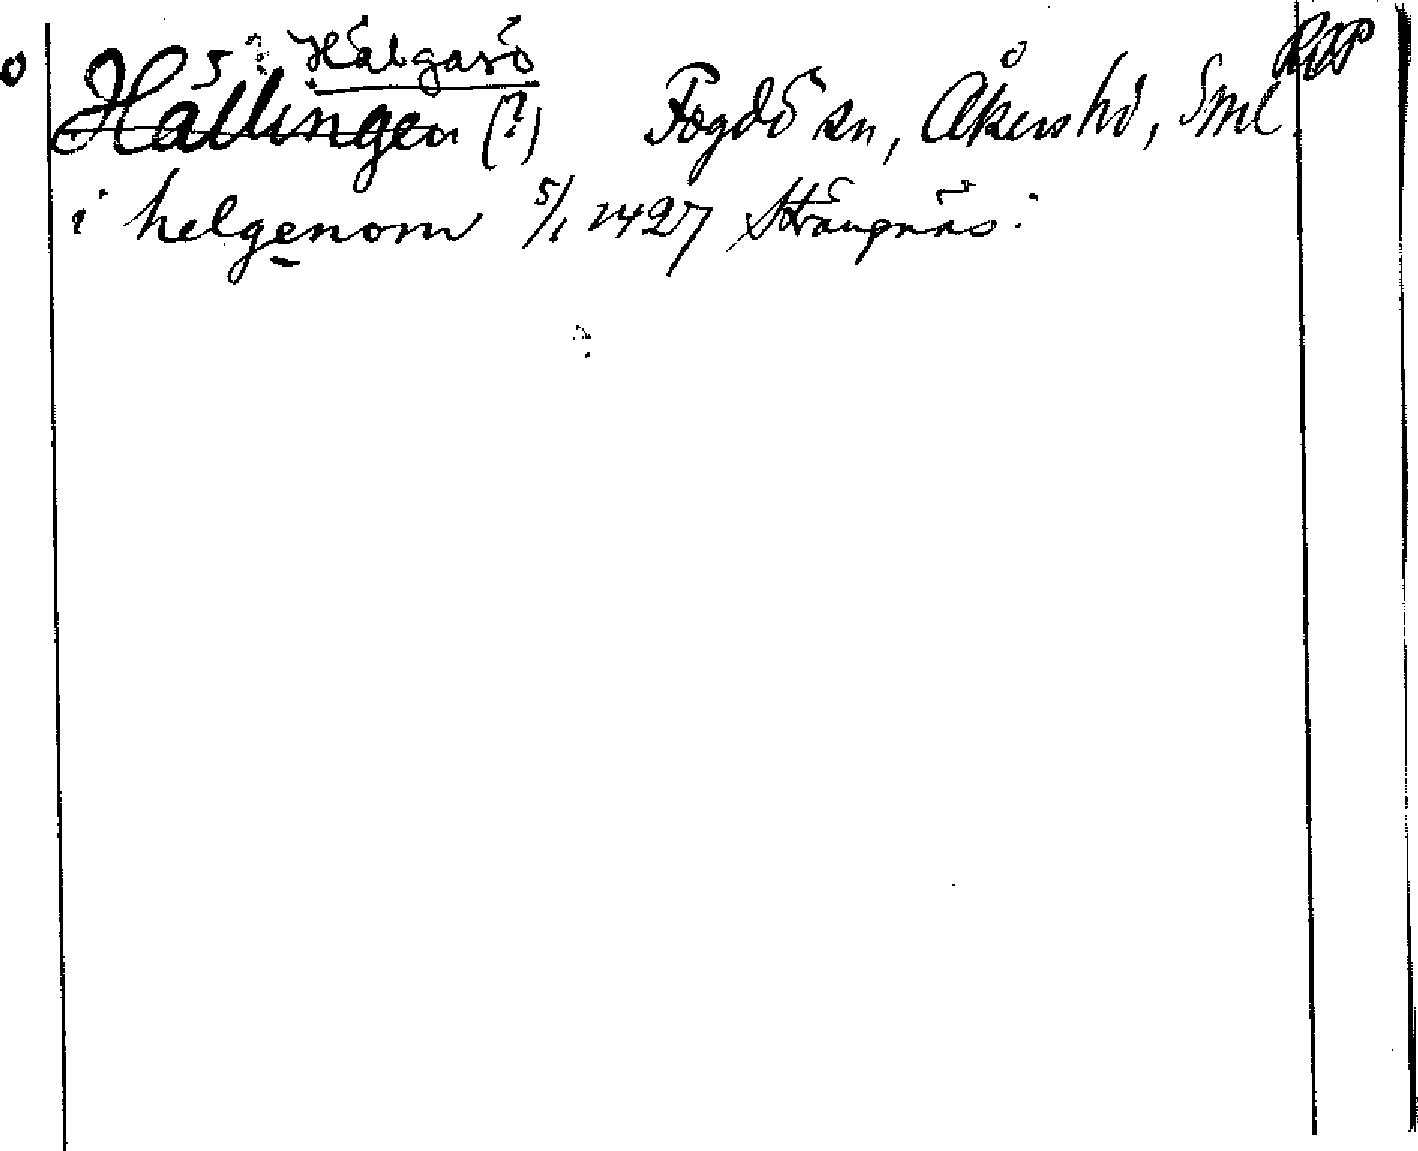 Hälgasö RAP
Hällingen (?) Fogdö sn, Åkers hd, Sml.
i helgenom 5/1 1427 Strängnäs.